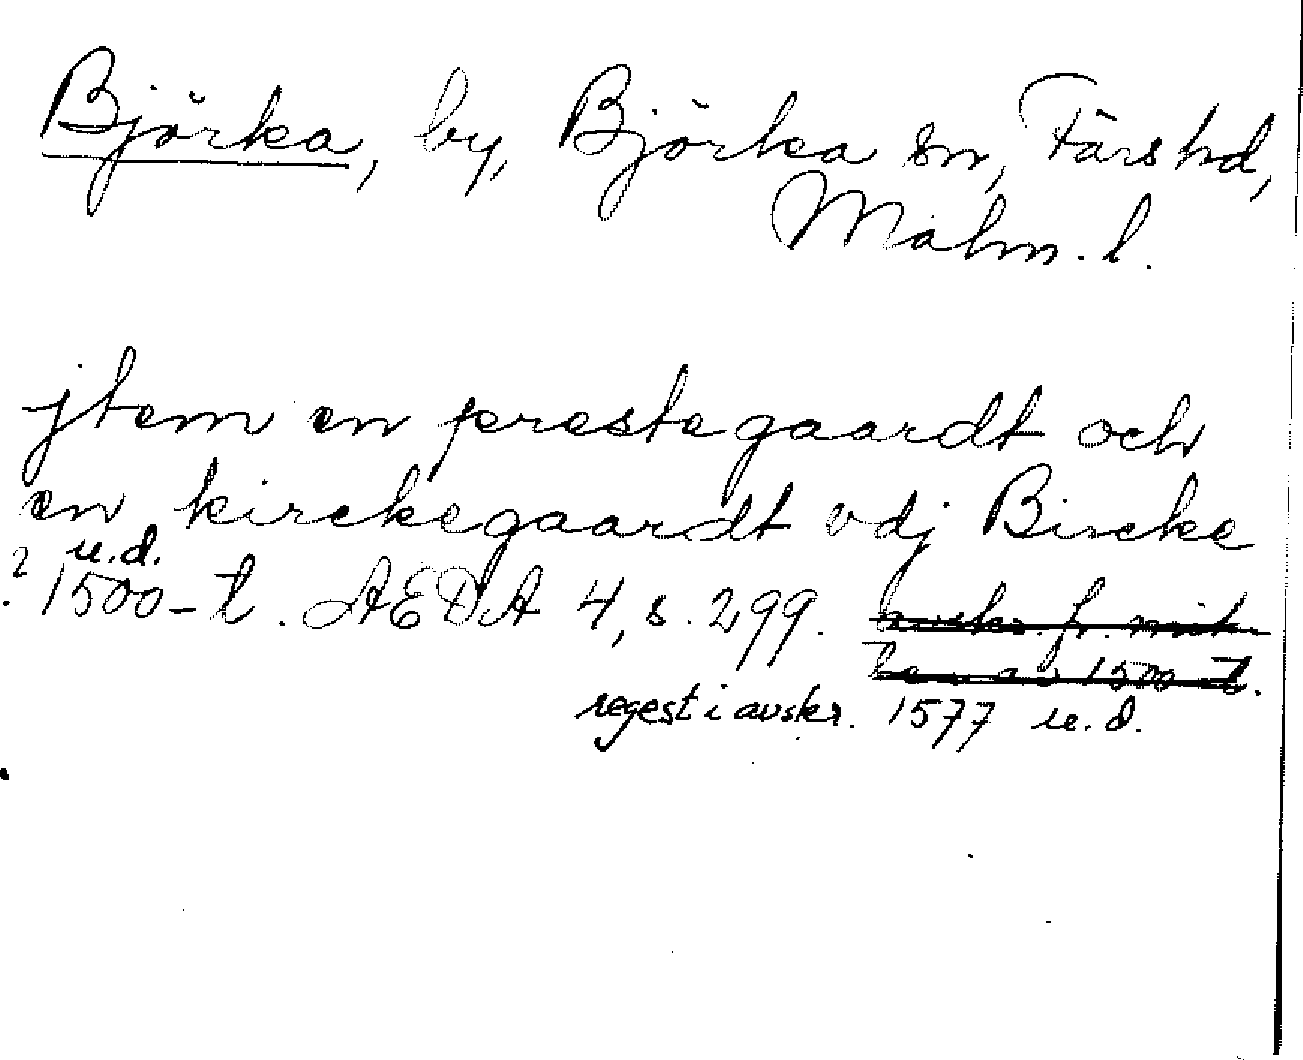 Björka, by, Björka sn, Färs hd,
Malm. l.
jtem en prestegaardt och
en kirckegaardt vdj Bircke
u.d.
? 1500-t. AEDA 4, s. 299. avskr. fr. mit-
ten av 1500-t.
regest i avskr. 1577 u.d.